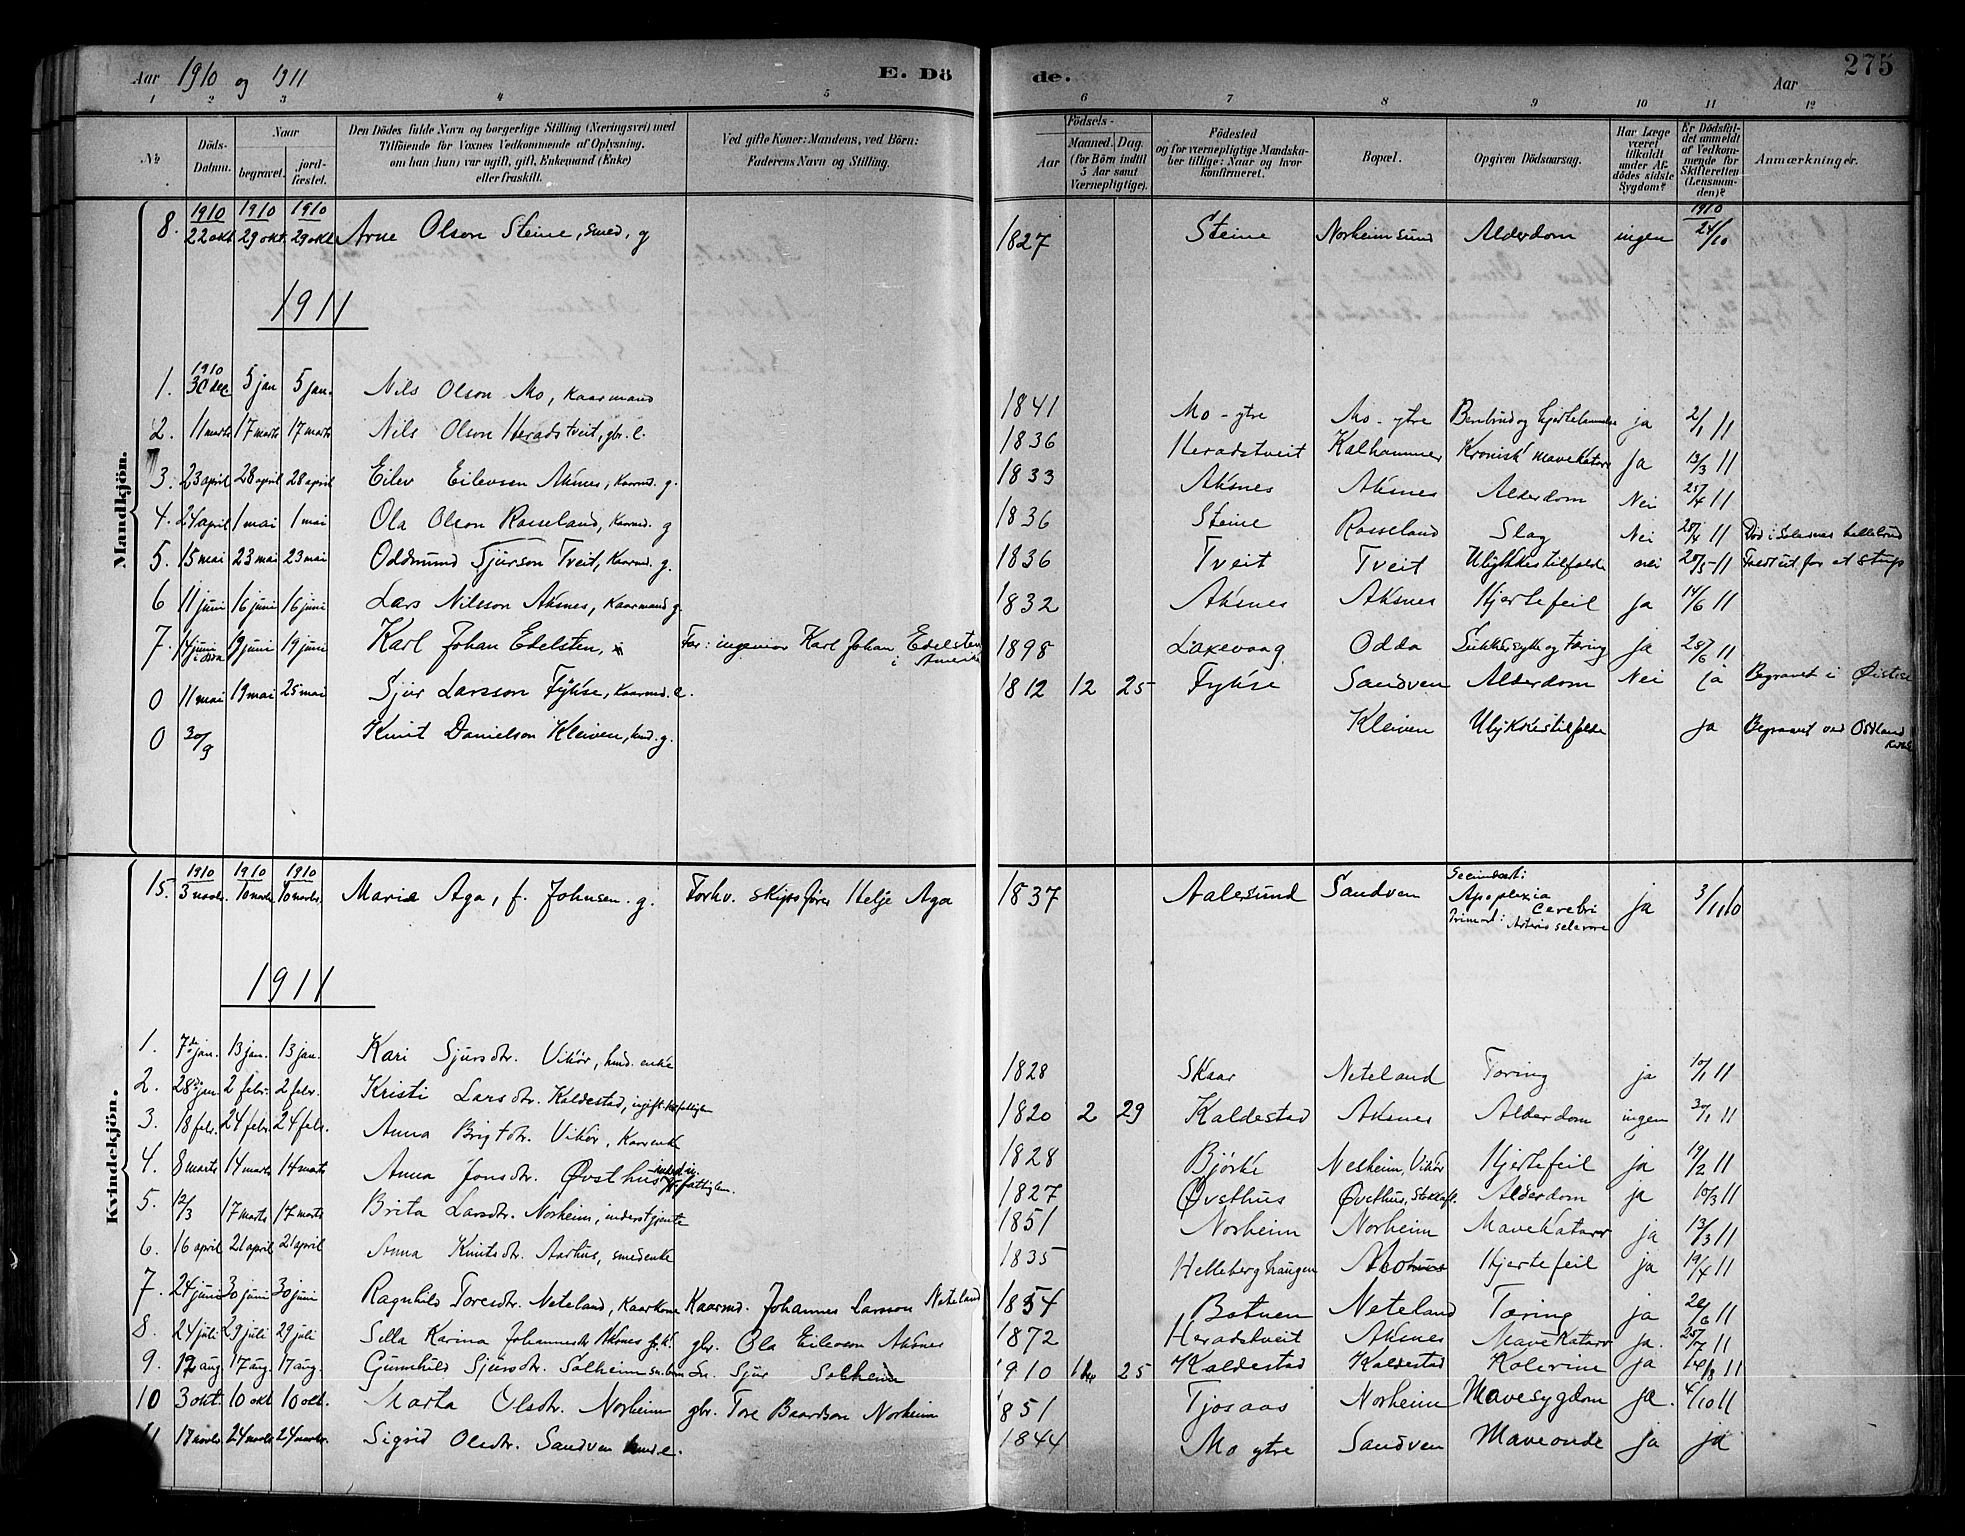 Aar 1910 og 1911
E. Dö de.
Aar
275
1 2 3 4 5 6 7 8 9 10 11 12
№
Döds-Datum.
Naar
begravet.
jord-fæstet.
Den Dödes fulde Navn og borgerlige Stilling (Næringsvei) med
Tilföiende for Voxnes Vedkommende af Oplysning,
om han (hun) var ugift, gift, Enkemand (Enke)
eller fraskilt.
Ved gifte Koner: Mandens, ved Börn:
Faderens Navn og Stilling.
Födsels-
Aar
Maaned. Dag.
(for Börn indtil
5 Aar samt
Værnepligtige).
Födested
og for værnepligtige Mandskaber tillige: Naar og hvor
konfirmeret.
Bopæl.
Opgiven Dödsaarsag.
Har Læge
været
tilkaldt
under Afdödes sidste
Sygdom?
Er Dödsfaldet anmeldt
af Vedkommende for
Skifteretten
(Lensmanden)?
Anmærkninger.
Mandkjön.
1910 1910 1910 1910
8. 22 okt 29 okt. 29 okt Arne Olson Steine, smed, g 1827 Steine Norheimsund Alderdom ingen 24/10
1911
1910
1. 30 dec 5 jan 5 jan. Nils Olson Mo, kaarmand 1841 Mo - ytre Mo - ytre ja 2/1 11
2. 11 marts 17 marts 17 marts Nils Olson Heradstveit, gbr. e. 1836 Heradstveit Kalhammer Kronisk mavekatarr Ja 13/3 11
3. 23 april 28 april 28 april Eilev Eilevsen Aksnes, kaarmd. g. 1833 Aksnes Aksnes Alderdom Nei 25/4 11
4. 24 april 1 mai 1 mai Ola Olson Rosseland, kaarmd. g 1836 Steine Rosseland Slag Nei 28/4 11 Död i
5. 15 mai 23 mai 23 mai Oddmund Sjurson Tveit, kaarmd. g. 1836 Tveit Tveit Ulykkestilfælde nei 20/5 11 ut for et stup
6 11 juni 16 juni 16 juni Lars Nilsson Aksnes, kaarmand g. 1832 Aksnes Aksnes Hjertefeil Ja 14/6 11
7. 14 juni i Odda 19 juni 19 juni Karl Johan Edelsten, Far: ingeniør Karl Johan Edelsten i Amerika 1898 Laxevaag Odda Sukkersyke og Tæring Ja 28/6 11
0 11 mai 19 mai 25 mai Sjur Larsson Fykse, kaarmd. e. 1812 12 25 Fykse Sandven Alderdom Nei ja Begravet i Øistese
0 30/9 Knut Danielson Kleiven, hmd. g. Kleiven Ulykkestilfælde ja Begravet ved
Kvindekjön.
1910 1910 1910
15. 3 novbr. 10 novbr. 10 novbr. Maria Aga, f. Johnsen. g. Forhv. skipsfører Helje Aga 1837 Aalesund Sandven Apoplexia Cerebri ja 3/11 10
1911
1. 7de jan. 13 jan. 13 jan. Kari Sjursdtr. Vikør, hmd. enke 1828 Skaar Neteland Tæring ja 10/1 11
2. 28 jan 2 febr. 2 febr. Kristi Larsdtr. Kaldestad, ugift 1820 2 29 Kaldestad Aksnes Alderdom ingen 30/1 11
3. 18 febr. 24 febr. 24 febr. Anna Brigtdtr. Vikør, Kaarenke 1828 Bjørke Nesheim, Vikør Hjertefeil ja 19/2 11
4. 8 marts 14 marts 14 marts Anna Jonsdtr. Øvsthus 1827 Øvsthus Øvsthus, Alderdom ja 10/3 11
5. 12/3 17 marts 17 marts Brita Larsdtr. Norheim, inderstjente 1851 Norheim Norheim Mavekatarr ja 13/3 11
6. 16 april 21 april 21 april Anna Knutsdtr. Aarhus, smedenke 1835 Helleberghaugen Hjertefeil ja 19/4 11
7. 24 juni 30 juni 30 juni Ragnhild Toresdtr. Neteland, kaarkone Kaarmd. Johannes Larsson Neteland 1854 Botnen Neteland Tæring ja 26/6 11
8. 24 juli 29 juli 29 juli Sella Karina Johannesdtr Aksnes gbr. Ola Eilevson Aksnes 1872 Heradstveit Aksnes Mavekatarr ja. 25/7 11
9. 12 aug 17 aug. 17 aug. Gunnhild Sjursdtr. Solheim Sjur Solheim 1910 25 Kaldestad Kaldestad Kolerine ja 14/8 11
10 3 okt. 10 okt 10 okt. Marta Olsdtr. Norheim gbr. Tore Baardson Norheim 1851 Tjosaas Norheim Mavesygdom ja. 4/10 11
11 18 novbr 24 novbr 24 novbr. Sigrid Olsdtr. Sandven hmd. e. 1844 Mo ytre Sandven Maveonde ja ja